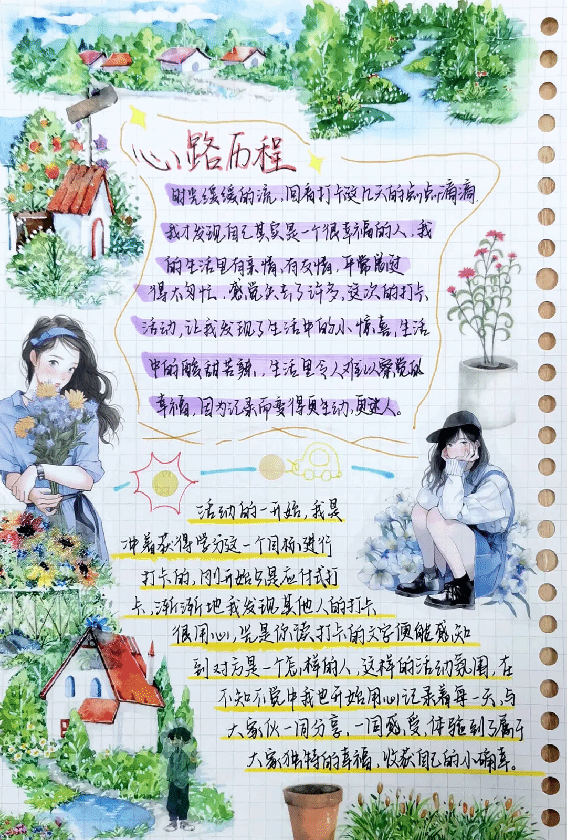 心路历程
时光缓缓的流,回看打卡这几天的点点滴滴
我才发现自己其实是一个很幸福的人,我
的生活里有亲情,有友情,平常总过
得太匆忙,感觉失去了许多,这次的打卡
活动,让我发现了生活中的小惊喜,生活
中的酸甜苦辣,生活里令人难以察觉的
幸福,因为记录而变得更生动,更迷人。
活动的一开始,我是
冲着获得学分这一个目标进行
打卡的,刚开始只是应付式打
卡,渐渐地我发现其他人的打卡
很用心,光是你读打卡的文字便能感知
到对方是一个怎样的人,这样的活动氛围,在
不知不觉中我也开始用心记录着每一天,与
大家伙一同分享,一同感受,体验到了属于
大家独特的幸福,收获自己的小确幸。